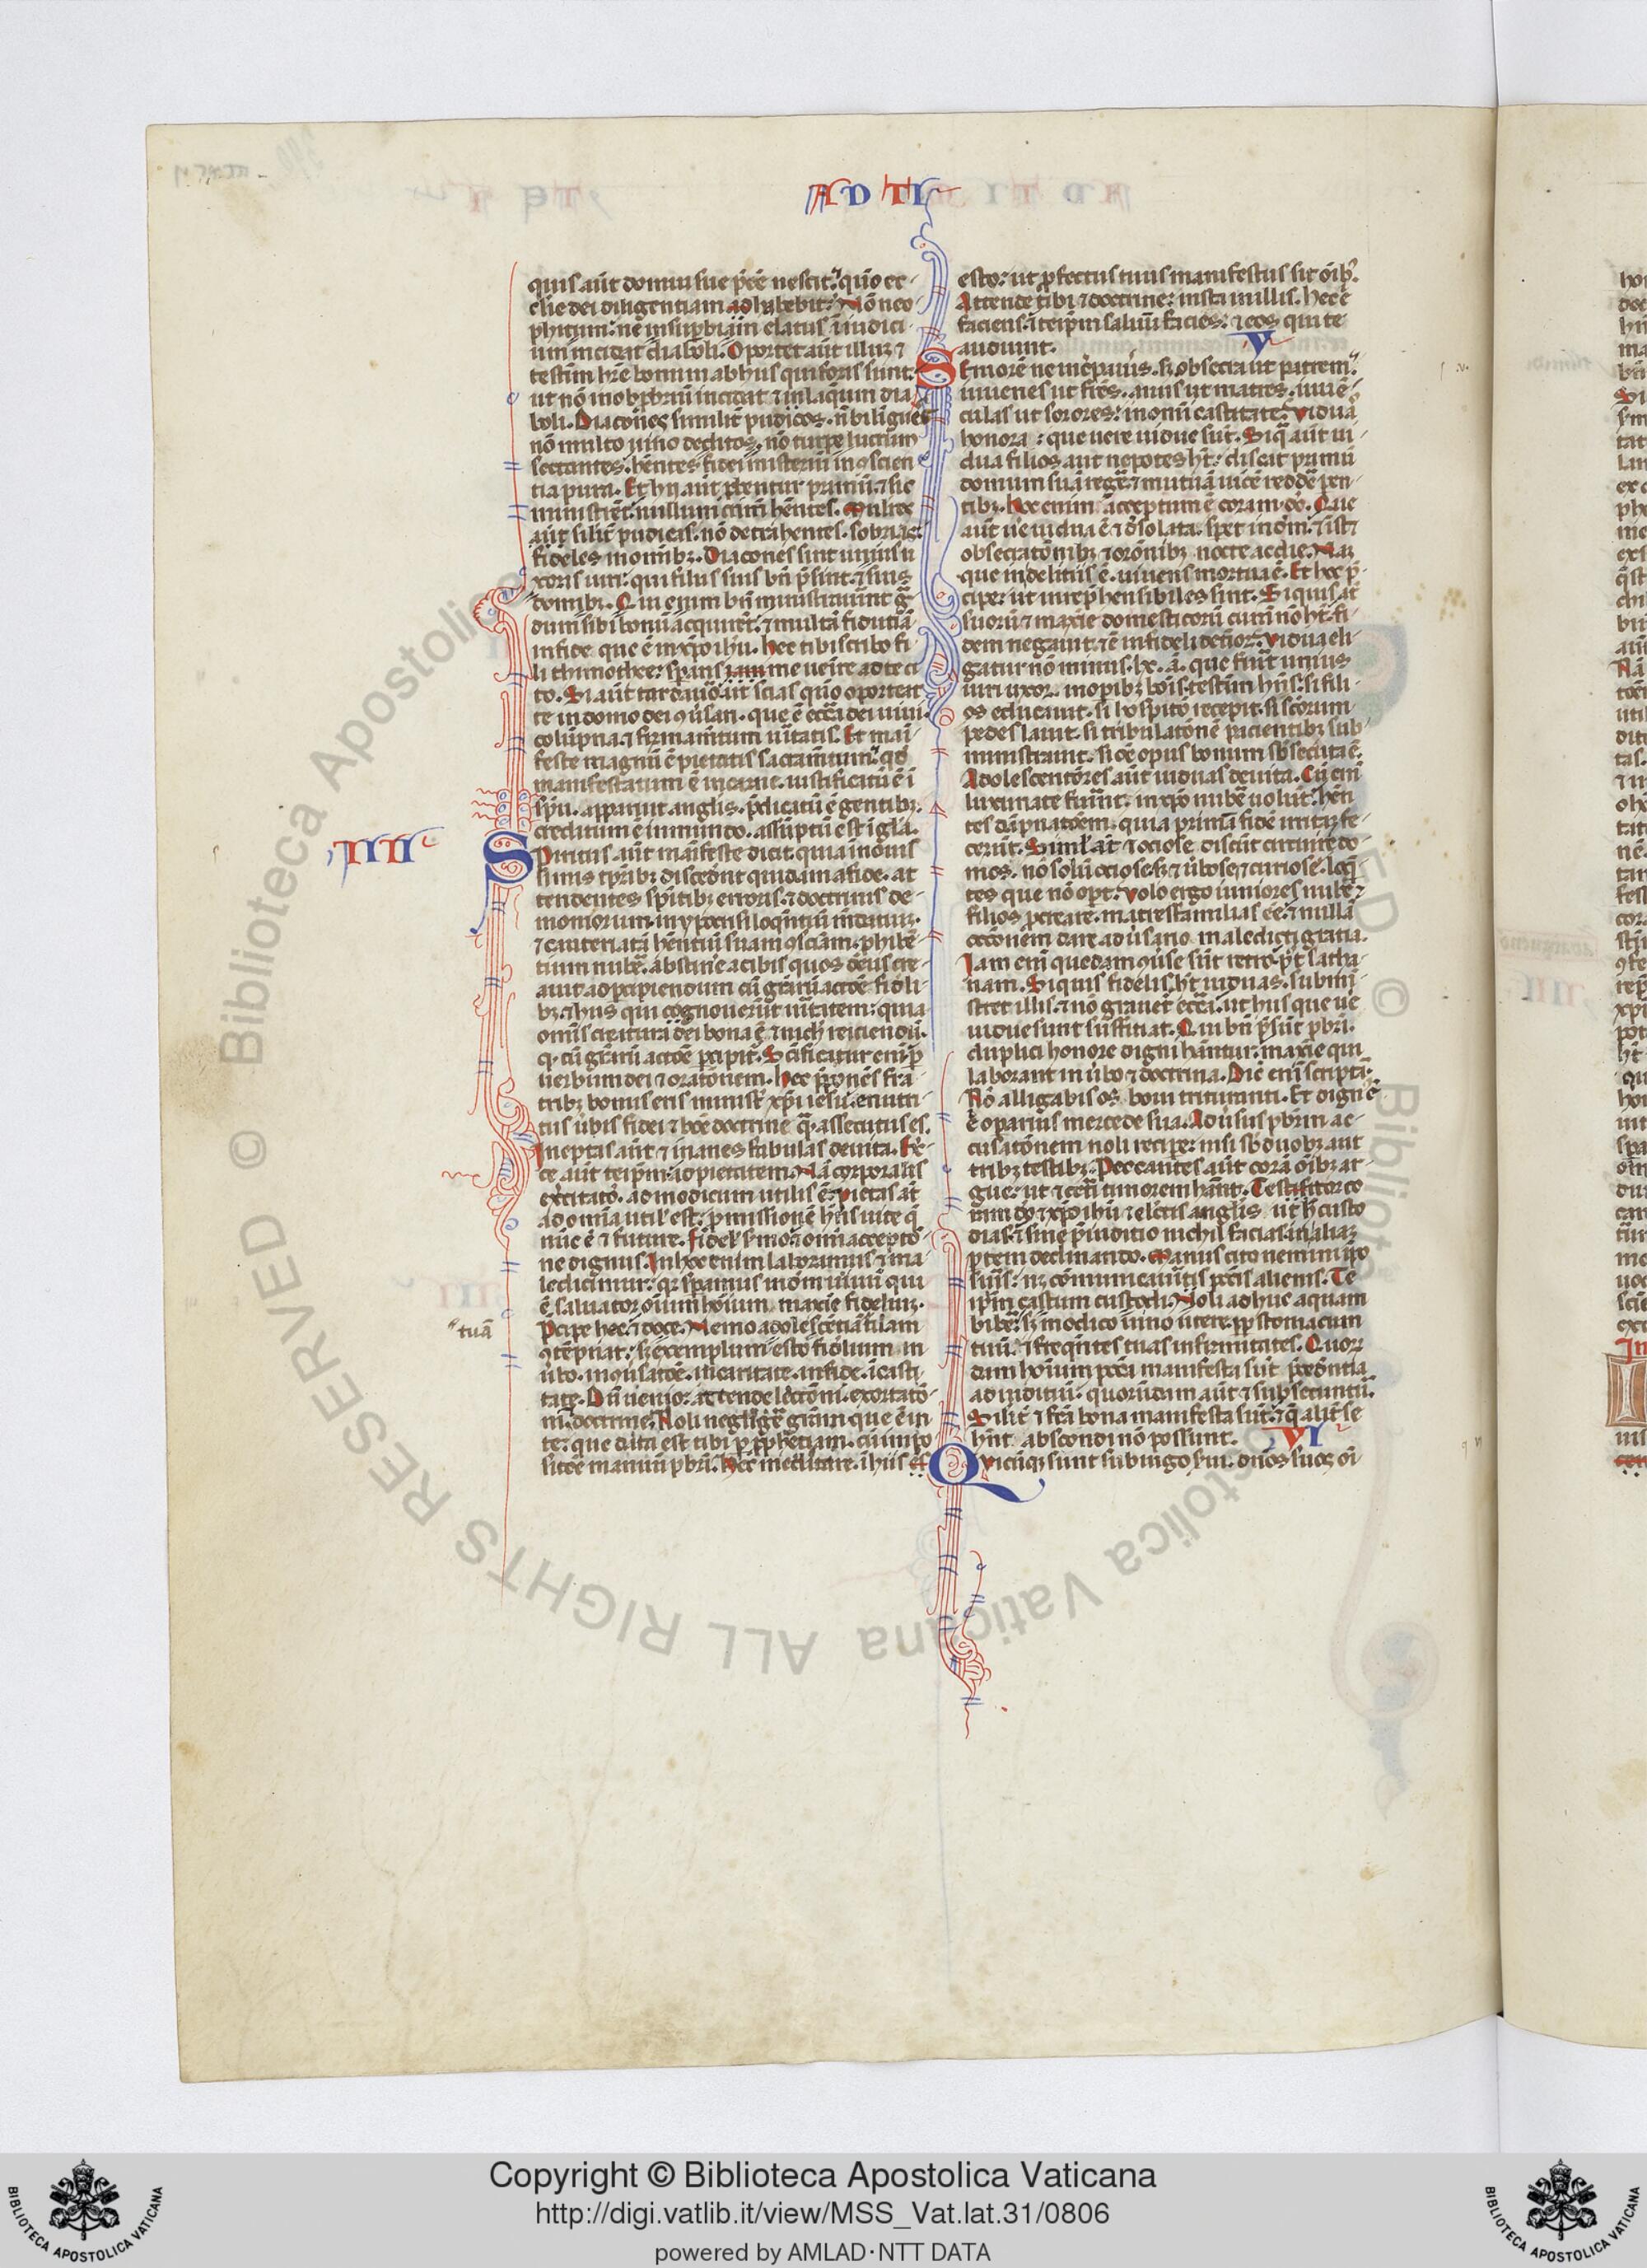 AD TI
quis aut̄ domui sue p̄ēe nescit: quo ec-
clie dei diligentiam adhibebit? Nō neo-
phitum: ne in supbiam elatus ī iudici-
um incidat diaboli. Oportet aut̄ illuz ⁊
testim̄ hr̄e bonum ab hiis qui foris sunt:
ut nō in obpbriū incidat ⁊ in laqueum dia-
boli. Diacones similit̄ pudicos. n̄ bilingues
nō multo uino deditos. nō turpe lucrum
sectantes. hn̄tes fidei misteriū in ꝯscien-
tia pura. Et hii aut̄ pbentur primū: ⁊ sic
ministrēt: nullum crimē hn̄tes. Mulieres
aut̄ silit̄ pudicas. nō detrahentes. sobrias.
fideles in omibz. Diacones sint unius u-
xoris uiri: qui filiis suis bn̄ p̄sint. ⁊ suis
domibz. Qui enim bn̄ ministrauūt g̃-
dum sibi bonū acquirēt: ⁊ multā fiduciā
in fide que ē in xp̄o ihū. hec tibi scribo fi-
li thimothee: spans iam me uenire ad te ci-
to. Si aut̄ tardauo ut scias quo oporteat
te in domo dei ꝯūsari. que ē ecc̄ia dei uiui.
colūpna ⁊ firmam̄tum uitatis. Et mai-
feste magnū ē pietatis sacram̄tum: qd
manifestatum ē in carne. iustificatū ē ī
spū. apparuit anglis. p̄dicatū ē gentibz.
creditum ē in mundo. assūptū est ī gl̄a.
IIII
Spiritus aut̄ maīfeste dicit quia in nouis-
simis tp̄ribz discedēt quidam a fide. at-
tendentes spiritibz erroris. ⁊ doctrinis de-
moniorum. in ypocrisi loquētiū mēdatiuz.
⁊ cauteriatā hn̄tiū suam ꝯsciāt. phibē-
tium nubē. abstinē a cibis quos deus cre-
auit ad pcipiendum cū gr̄arū actōe fideli-
bz. ⁊ hiis qui cognouerūt uītatem: quia
omīs creatura dei bona ē ⁊ nich̄ reiciendū.
q̄ cū gr̄arū actōe pcipit̄. Scificatur enī p
uerbum dei ⁊ oratōnem. hec pponēs fra-
tribz bonus eris minist̄ xp̄i iesu. enutri-
tus ūbis fidei ⁊ bōe doctrine q̄. assecutus es.
Ineptas aut̄ ⁊ inanes fabulas deuita. Ex̄-
ce aut̄ teip̄m ad pietatem. Nā corporalis
exc̄itatō. ad modicum utilis ē: pietas at̄
ad omīa util̄ est: pmissionē hn̄s uite q̄
nūc ē ⁊ future. fidel̄ s̄mo ⁊ omī accepto-
ne dignus. In hoc enim laboramus ⁊ ma-
ledicimur: qr̄ spamus in dm̄ uiuū qui
ē saluator oīum hoīum. maxīe fidelium.
Pcipe hec ⁊ doce. Nemo adolescētiā tuam
ꝯtēpnat: sz exemplum esto fidelium in
ūbo. in ꝯūsatōe. in caritate. in fide. ī casti-
tate. Dū uenio: attende lectōni. exortatō-
ni. doctrine. Noli negligē gr̄am que ē in
te: que data est tibi p pphetiam. cū impo-
sitōe manuū pbri. hec meditare. ī hiis
tuā
esto: ut pfectus tuus manifestus sit oībz.
Attende tibi ⁊ doctrine: insta in illis. hec ē
faciens. ⁊ teip̄m saluū facies: ⁊ eos qui te
audiunt.
V
Seniorē ne inc̄pauis. sz obsecra ut patrem:
iuuenes ut fr̄es. anus ut matres. iuuē-
culas ut sorores: in omī castitate. viduā
honora: que uere uidue sūt. Si q̄ aut̄ ui-
dua filios aut nepotes ht̄: discat primū
domum suā regē. ⁊ mutuā uicē reddē pen-
tibz. hoc enim acceptum ē coram do. Que
aut̄ ue uidua ē ⁊ dsolata. speret in dm̄. ⁊ īstet
obsecratōnibz ⁊ orōnibz nocte ac die. Naz
que in deliciis ē. uiuens mortua ē. Et hoc p̄-
cipe: ut irrep̄hensibiles sint. Si quis at̄
suorū ⁊ maxīe domesticorū curā nō ht̄. fi-
dem negauit: ⁊ ē infideli det̄ior. Vidua eli-
gatur nō minus. lx. ā. que fuīt unius
uiri uxor. in opibz boīs testim̄ hn̄s. si fili-
os educauit. si hospitō recepit. si sc̄orum
pedes lauit. si tribulatōnē pacientibz sub-
ministrauit. si oē opus bonum sbsecuta ē.
Adolescentōres aut̄ uiduas deuita. Cū enī
luxuriate fuīnt. in xp̄o nubē uolūt: hn̄-
tes dāpnatōem. quia primā fidē irritā fe-
cerūt. Simĺ at̄ ⁊ ociose discūt circuire do-
mos. nō solū ociose. sz ⁊ ūbose ⁊ curiose. loq̄-
tes que nō oport̄. volo ergo iuniores nubē.
filios pcreare. matresfamilias eē. ⁊ nullā
occōnem dare adūsario maledicti gratia.
Iam enī quedam ꝯūse sūt retro p̄t satha-
nam. Si quis fidelis ht̄ uiduas. submi-
stret illis. ⁊ nō grauet̄ ecc̄ia. ut hiis que ue
uidue sunt sufficiat. Qui bn̄ p̄sūt pbri.
duplici honore digni hn̄tur: maxīe qui
laborant in ūbo ⁊ doctrina. Dic̄ enī scripta.
Nō alligabis os boui trituranti. Et dign̄
ē oparius mercede sua. Adūsus pbrm̄ ac-
cusatōnem noli recipere: nisi sb duobz aut
tribz testibz. Peccantes aut̄ corā oībz ar-
gue: ut ⁊ cet̄i timorem hn̄t. Testificor co-
ram do ⁊ xp̄o ihū ⁊ elc̄is anglis ut h̄ custo-
dias. ⁊ sine p̄iuditio nichil facias in aliaz
ptem declinando. Manus cito nemini īpo-
suis: nz cōmunicauitis pctis alienis. Te
ip̄m castum custodi. Noli adhuc aquam
bibē: sz modico uino utere pp̄ stomacum
tuū. ⁊ freqntes tuas infirmitates. Quorū-
dam hoīum pctā manifesta sūt p̄cedntia
ad iuditiū: quorūdam aut̄ ⁊ subsecuntū.
Silit̄ ⁊ fcā bona manifesta sūt: ⁊ q̄ alit̄ se
hn̄t abscondi nō possunt.
VI
Quicūqz sunt sub iugo sui. dn̄os suos oī-
Copyright © Biblioteca Apostolica Vaticana
http://digi.vatlib.it/view/MSS_Vat.lat.31/0806
powered by AMLAD·NTT DATA
BIBLIOTECA APOSTOLICA VATICANA
BIBLIOTECA APOSTOLICA VATICANA
© Biblioteca Apostolica Vaticana ALL RIGHTS RESERVED